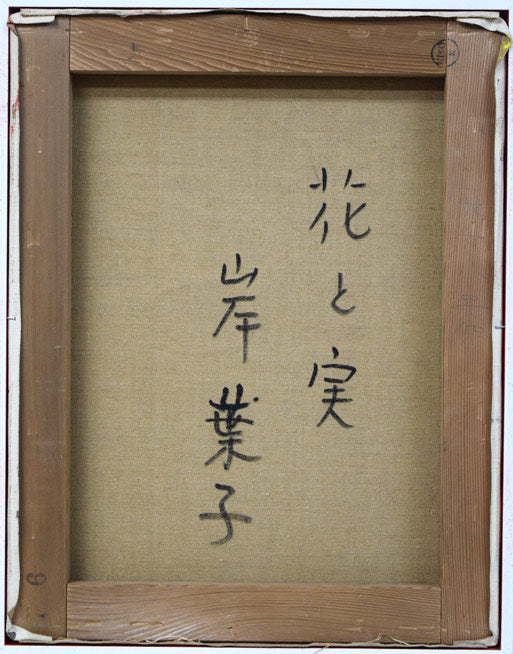 花と実
岸葉子
6